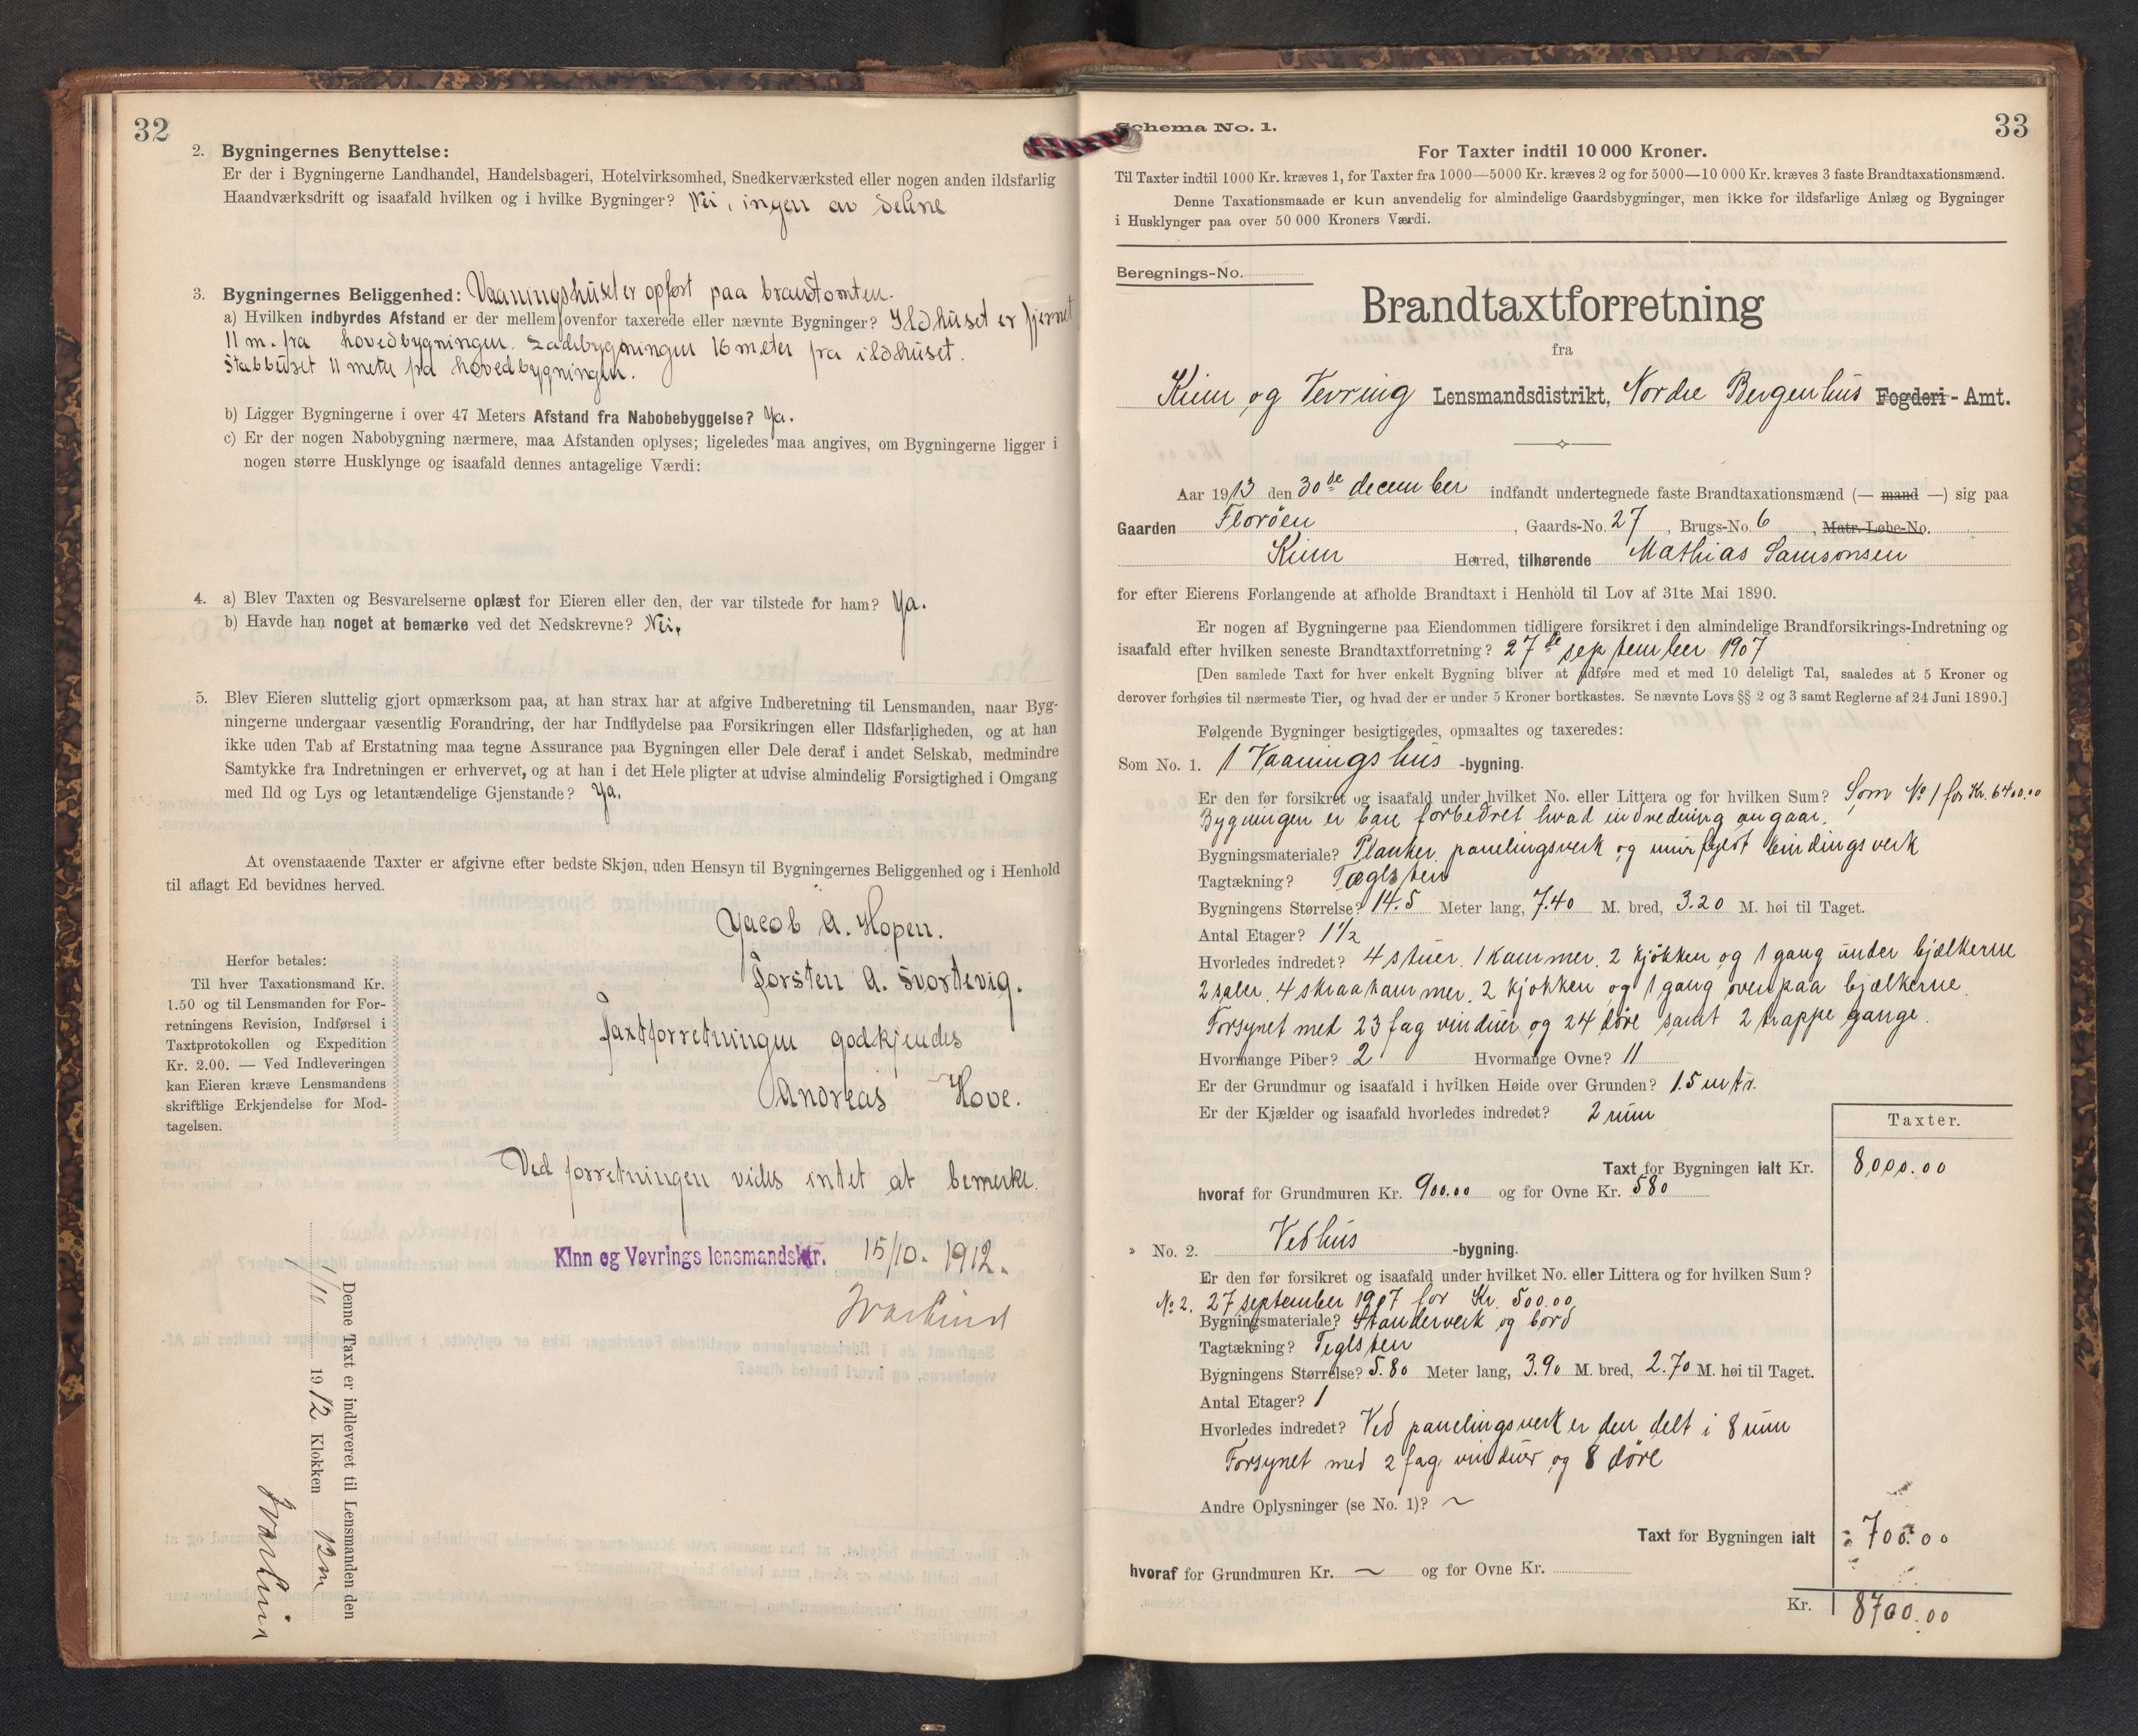 32
2. Bygningernes Benyttelse:
Er der i Bygningerne Landhandel, Handelsbageri, Hotelvirksomhed, Snedkerværksted eller nogen anden ildsfarlig
Haandværksdrift og isaafald hvilken og i hvilke Bygninger? Nei, ingen av delene
3. Bygningernes Beliggenhed: Vaaningshuset er opført paa brandtomten.
a) Hvilken indbyrdes Afstand er der mellem ovenfor taxerede eller nævnte Bygninger? Ildhuset er fjernet
11 m. fra hovedbygningen. Ladebygningen 16 meter fra ildhuset.
Stabburet 11 meter fra hovedbygningen.
b) Ligger Bygningerne i over 47 Meters Afstand fra Nabobebyggelse? Ja.
c) Er der nogen Nabobygning nærmere, maa Afstanden oplyses; ligeledes maa angives, om Bygningerne ligger i
nogen større Husklynge og isaafald dennes antagelige Værdi:
4. a) Blev Taxten og Besvarelserne oplæst for Eieren eller den, der var tilstede for ham? Ja.
b) Havde han noget at bemærke ved det Nedskrevne? Nei.
5. Blev Eieren sluttelig gjort opmærksom paa, at han strax har at afgive Indberetning til Lensmanden, naar Byg-
ningerne undergaar væsentlig Forandring, der har Indflydelse paa Forsikringen eller Ildsfarligheden, og at han
ikke uden Tab af Erstatning maa tegne Assurance paa Bygningen eller Dele deraf i andet Selskab, medmindre
Samtykke fra Indretningen er erhvervet, og at han i det Hele pligter at udvise almindelig Forsigtighed i Omgang
med Ild og Lys og letantændelige Gjenstande? Ja.
At ovenstaaende Taxter er afgivne efter bedste Skjøn, uden Hensyn til Bygningernes Beliggenhed og i Henhold
til aflagt Ed bevidnes herved.
Jacob A. Hopen.
Torsten A. Svortevig.
Taxtforretningen godkjendes
Andreas Hove.
Herfor betales:
Til hver Taxationsmand Kr.
1.50 og til Lensmanden for For-
retningens Revision, Indførsel i
Taxtprotokollen og Expedition
Kr. 2.00. — Ved Indleveringen
kan Eieren kræve Lensmandens
skriftlige Erkjendelse for Mod-
tagelsen.
Ved forretningen vides intet at bemerke.
Kinn og Vevrings lensmandsktr. 15/10. 1912.
Denne Taxt er indleveret til Lensmanden den
1/10 1912 Klokken 12 m
33
Schema No. 1.
For Taxter indtil 10 000 Kroner.
Til Taxter indtil 1000 Kr. kræves 1, for Taxter fra 1000—5000 Kr. kræves 2 og for 5000—10 000 Kr. kræves 3 faste Brandtaxationsmænd.
Denne Taxationsmaade er kun anvendelig for almindelige Gaardsbygninger, men ikke for ildsfarlige Anlæg og Bygninger
i Husklynger paa over 50 000 Kroners Værdi.
Beregnings-No.
Brandtaxtforretning
fra
Kinn og Vevring Lensmandsdistrikt, Nordre Bergenhus Fogderi - Amt.
Aar 1913 den 30de december indfandt undertegnede faste Brandtaxationsmænd (— mand —) sig paa
Gaarden Florøen, Gaards-No. 27, Brugs-No. 6, Matr. Løbe-No.
Kinn Herred, tilhørende Mathias Samsonsen
for efter Eierens Forlangende at afholde Brandtaxt i Henhold til Lov af 31te Mai 1890.
Er nogen af Bygningerne paa Eiendommen tidligere forsikret i den almindelige Brandforsikrings-Indretning og
isaafald efter hvilken seneste Brandtaxtforretning? 27de september 1907
[Den samlede Taxt for hver enkelt Bygning bliver at udføre med et med 10 deleligt Tal, saaledes at 5 Kroner og
derover forhøies til nærmeste Tier, og hvad der er under 5 Kroner bortkastes. Se nævnte Lovs §§ 2 og 3 samt Reglerne af 24 Juni 1890.]
Følgende Bygninger besigtigedes, opmaaltes og taxeredes:
Som No. 1. 1 Vaaningshus -bygning.
Er den før forsikret og isaafald under hvilket No. eller Littera og for hvilken Sum? Som No 1 for Kr. 6400.00
Bygningen er bau forbedret hvad indredning angaar.
Bygningsmateriale? Planker, panelingsverk og murfyldt bindingsverk
Tagtækning? Tæglsten
Bygningens Størrelse? 14.5 Meter lang, 7.40 M. bred, 3.20 M. høi til Taget.
Antal Etager? 1½
Hvorledes indredet? 4 stuer, 1 kammer, 2 kjøkken og 1 gang under bjælkerne
2 saler, 4 skraakammer, 2 kjøkken og 1 gang ovenpaa bjælkerne.
Forsynet med 23 fag vinduer og 24 døre samt 2 trappe gange.
Hvormange Piber? 2 Hvormange Ovne? 11
Er der Grundmur og isaafald i hvilken Høide over Grunden? 1.5 mtr.
Er der Kjælder og isaafald hvorledes indredet? 2 rum
Taxter.
Taxt for Bygningen ialt Kr. 8,000.00
hvoraf for Grundmuren Kr. 900.00 og for Ovne Kr. 580
» No. 2. Vedhus -bygning.
Er den før forsikret og isaafald under hvilket No. eller Littera og for hvilken Sum?
No 2. 27 september 1907 for Kr. 500.00
Bygningsmateriale? Standerverk og bord
Tagtækning? Teglsten
Bygningens Størrelse? 5.80 Meter lang, 3.90 M. bred, 2.70 M. høi til Taget.
Antal Etager? 1
Hvorledes indredet? Ved panelingsverk er den delt i 8 rum
Forsynet med 2 fag vinduer og 8 døre
Andre Oplysninger (se No. 1)? ~
Taxt for Bygningen ialt 700.00
hvoraf for Grundmuren Kr. ~ og for Ovne Kr.
Kr. 8700.00